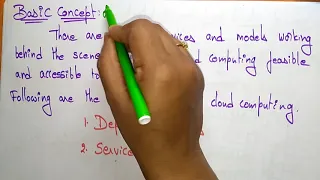 BASIC Concept:
There are vices and models working
behind the scene d computing feasible
and accessible to
Following are the cloud computing.
1. Dep
2. Service